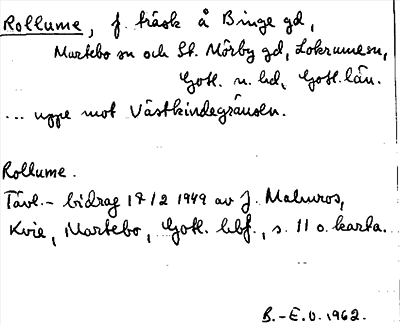 Rollume, f. träsk å Binge gd,
Martebo sn och St. Mörby gd, Lokrume sn,
Gotl. n. hd, Gotl. län.
... uppe mot Västkindegränsen.
Rollume.
Tävl.- bidrag 17/2 1949 av J. Malmros,
Kvie, Martebo, Gotl. hbf., s. 11 o. karta.
B.-E.O. 1962.